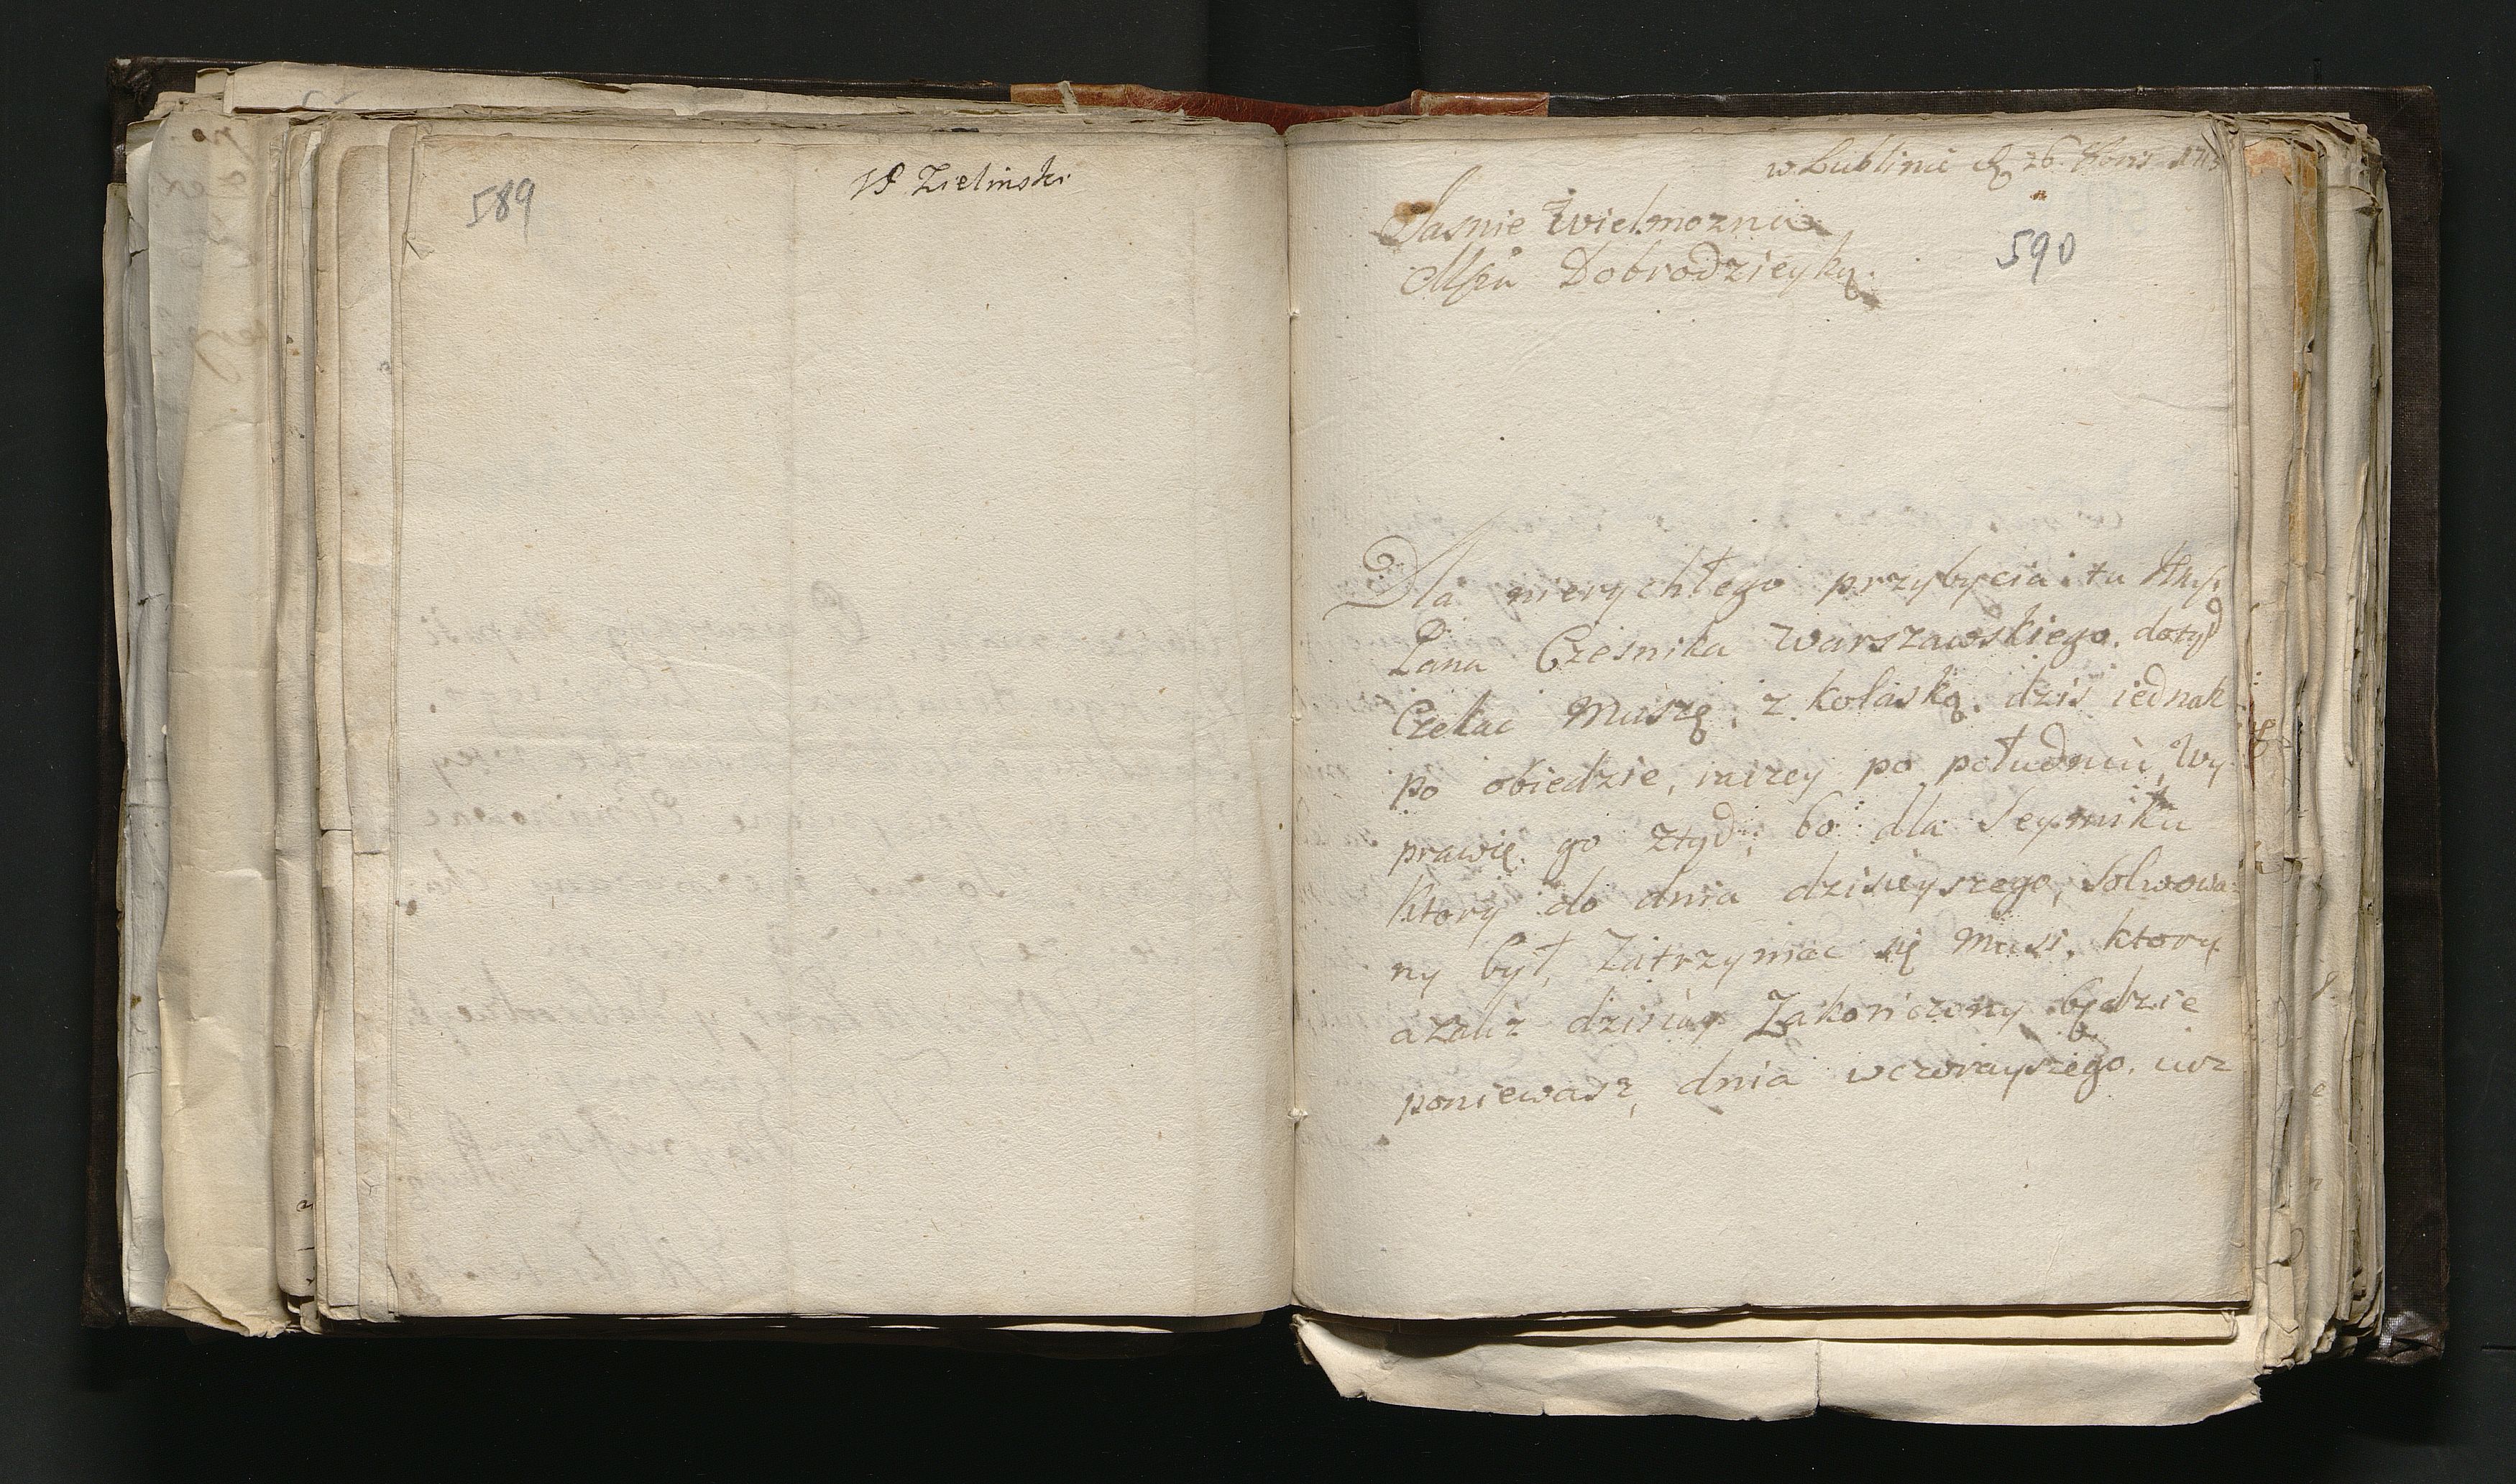 589
Zielinski
w Lublinie 26.
Jasnie Wielmozna
Dobrodzieyko.
590
Dla nierychłego przybycia tu
Pana Czesnika Warszawskiego. dotyd
Czekac Muszę, z kolaską. dzis iednak
po obiedzie, raczey po południu, wy
prawię. go ztyd; bo dla Seymiku
ktory do dnia dzisieyszego, Solwowa
ny był, Zatrzymac się Musi. ktory
azali dzisiay Zakonczony będzie
poniewasz, dnia wczorayszego.